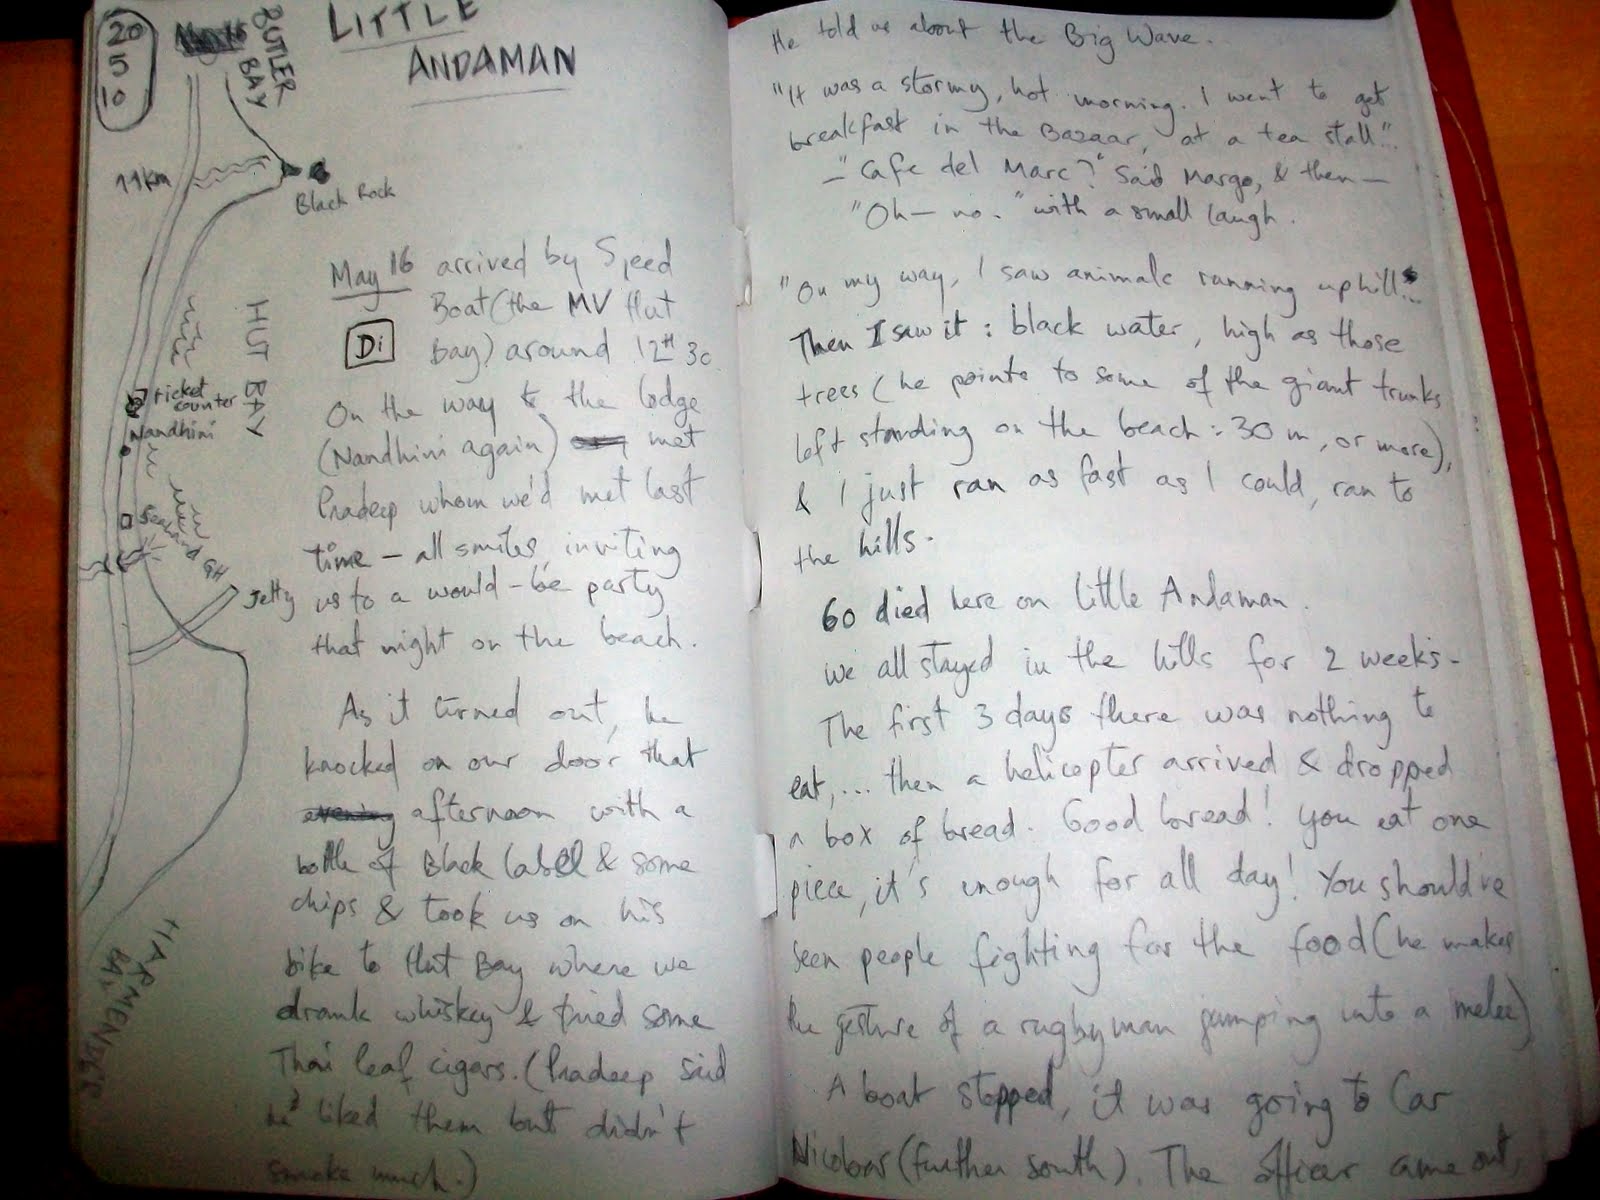 20
5
10
BUTLER
BAY
LITTLE
ANDAMAN
11km
Black Rock
HUT BAY
ticket
counter
Nandhini
Sealand GH
Jetty
HARMENDER
BAY
May 16 arrived by Speed
Boat (the MV Hut
Di
Bay) around 12H 30
On the way to the lodge
(Nandhini again) met
Pradeep whom we'd met last
time – all smiles, inviting
us to a would-be party
that night on the beach.
As it turned out, he
knocked on our door that
evening afternoon with a
bottle of Black Label & some
chips & took us on his
bike to Hut Bay where we
drank whiskey & tried some
Thai leaf cigars. (Pradeep said
he liked them but didn't
smoke much.)
He told us about the Big Wave.
"It was a stormy, hot morning. I went to get
breakfast in the Bazaar, at a tea stall".
– "Cafe del Marc?" Said Margo, & then –
"Oh – no." with a small laugh.
"On my way, I saw animals running uphill.
Then I saw it: black water, high as those
trees (he points to some of the giant trunks
left standing on the beach: 30 m, or more),
& I just ran as fast as I could, ran to
the hills.
60 died here on Little Andaman.
We all stayed in the hills for 2 weeks.
The first 3 days there was nothing to
eat,... then a helicopter arrived & dropped
a box of bread. Good bread! You eat one
piece, it's enough for all day! You should've
seen people fighting for the food (he makes
the gesture of a rugbyman jumping into a melee)
A boat stopped, it was going to Car
Nicobar (further south). The officer came out,